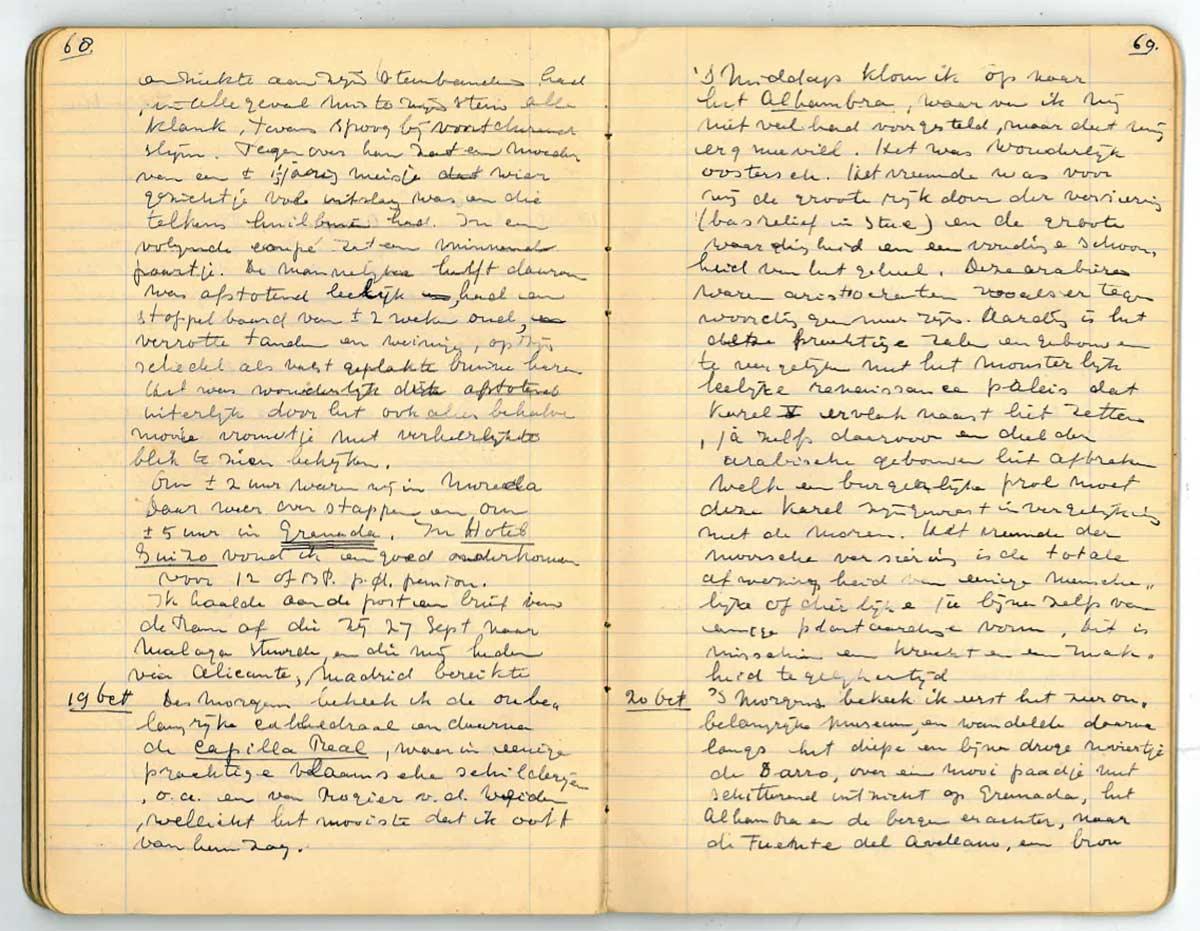 68
en ziekte aan zijn stembanden had
, in elk geval miste zijn stem alle
klank, tevens spoog hij voortdurend
slijm. Tegenover hem zat een moeder
van een ± 1½ jarig meisje dat wier
gezichtje vol uitslag was en die
telkens huilbuien had. In een
volgende coupé zat een minnend
paartje. De mannelijke helft daarvan
was afstotend leelijk, had een
stoppelbaard van ± 2 weken oud,
verrotte tanden en weinige, op zijn
schedel als vast geplakte bruine haren
Het was wonderlijk dit afstotend
uiterlijk door het ook alles behalve
mooie vrouwtje met verheerlijkte
blik te zien bekijken.
Om ± 2 uur waren wij in Moreda
Daar weer overstappen en om
± 5 uur in Granada. In Hotel
Suizo vond ik een goed onderkomen
voor 12 of pt. p.d. pension.
Ik haalde aan de post een brief van
de Ram af die zij 27 Sept naar
Malaga stuurde, en die mij heden
via Alicante, Madrid bereikte
19 Oct Des morgens bekeek ik de onbe„
langrijke cathedraal en daarna
de Capilla Real, waarin eenige
prachtige vlaamsche schilderijen
, o.a. en van Rogier v.d. Weiden
, wellicht het mooiste dat ik ooit
van hem zag.
69.
'S Middags klom ik op naar
het Alhambra, waarvan ik mij
niet veel had voorgesteld, maar dat mij
erg meeviel. Het was wonderlijk
oostersch. Het vreemde was voor
mij de groote rijkdom der versiering
(basrelief in stuc) en de groote
waardigheid en eenvoudige schoon„
heid van het geheel. Deze arabieren
waren aristocraten zooals er tegen
woordig geen meer zijn. Aardig is het
deze prachtige zalen en gebouwen
te vergelijken met het monsterlijk
leelijke renaissance paleis dat
Karel V er vlak naast liet zetten
, ja zelfs daarvoor een deel der
arabische gebouwen liet afbreken
Welk een burgerlijke prol moet
deze Karel zijn geweest in vergelijking
met de moren. Het vreemde der
moorsche versiering is de totale
afwezigheid van eenige mensche„
lijke of dierlijke ja bijna zelfs van
eenige plantaardige vorm, dit is
misschien een kracht en een zwak„
heid tegelijkertijd
20 Oct 'S Morgens bekeek ik eerst het zeer on„
belangrijke museum, en wandelde daarna
langs het diepe en bijna droge riviertje
de Darro, over een mooi paadje met
schitterend uitzicht op Granada, het
Alhambra en de bergen erachter, naar
de Fuente del Avellano, een bron